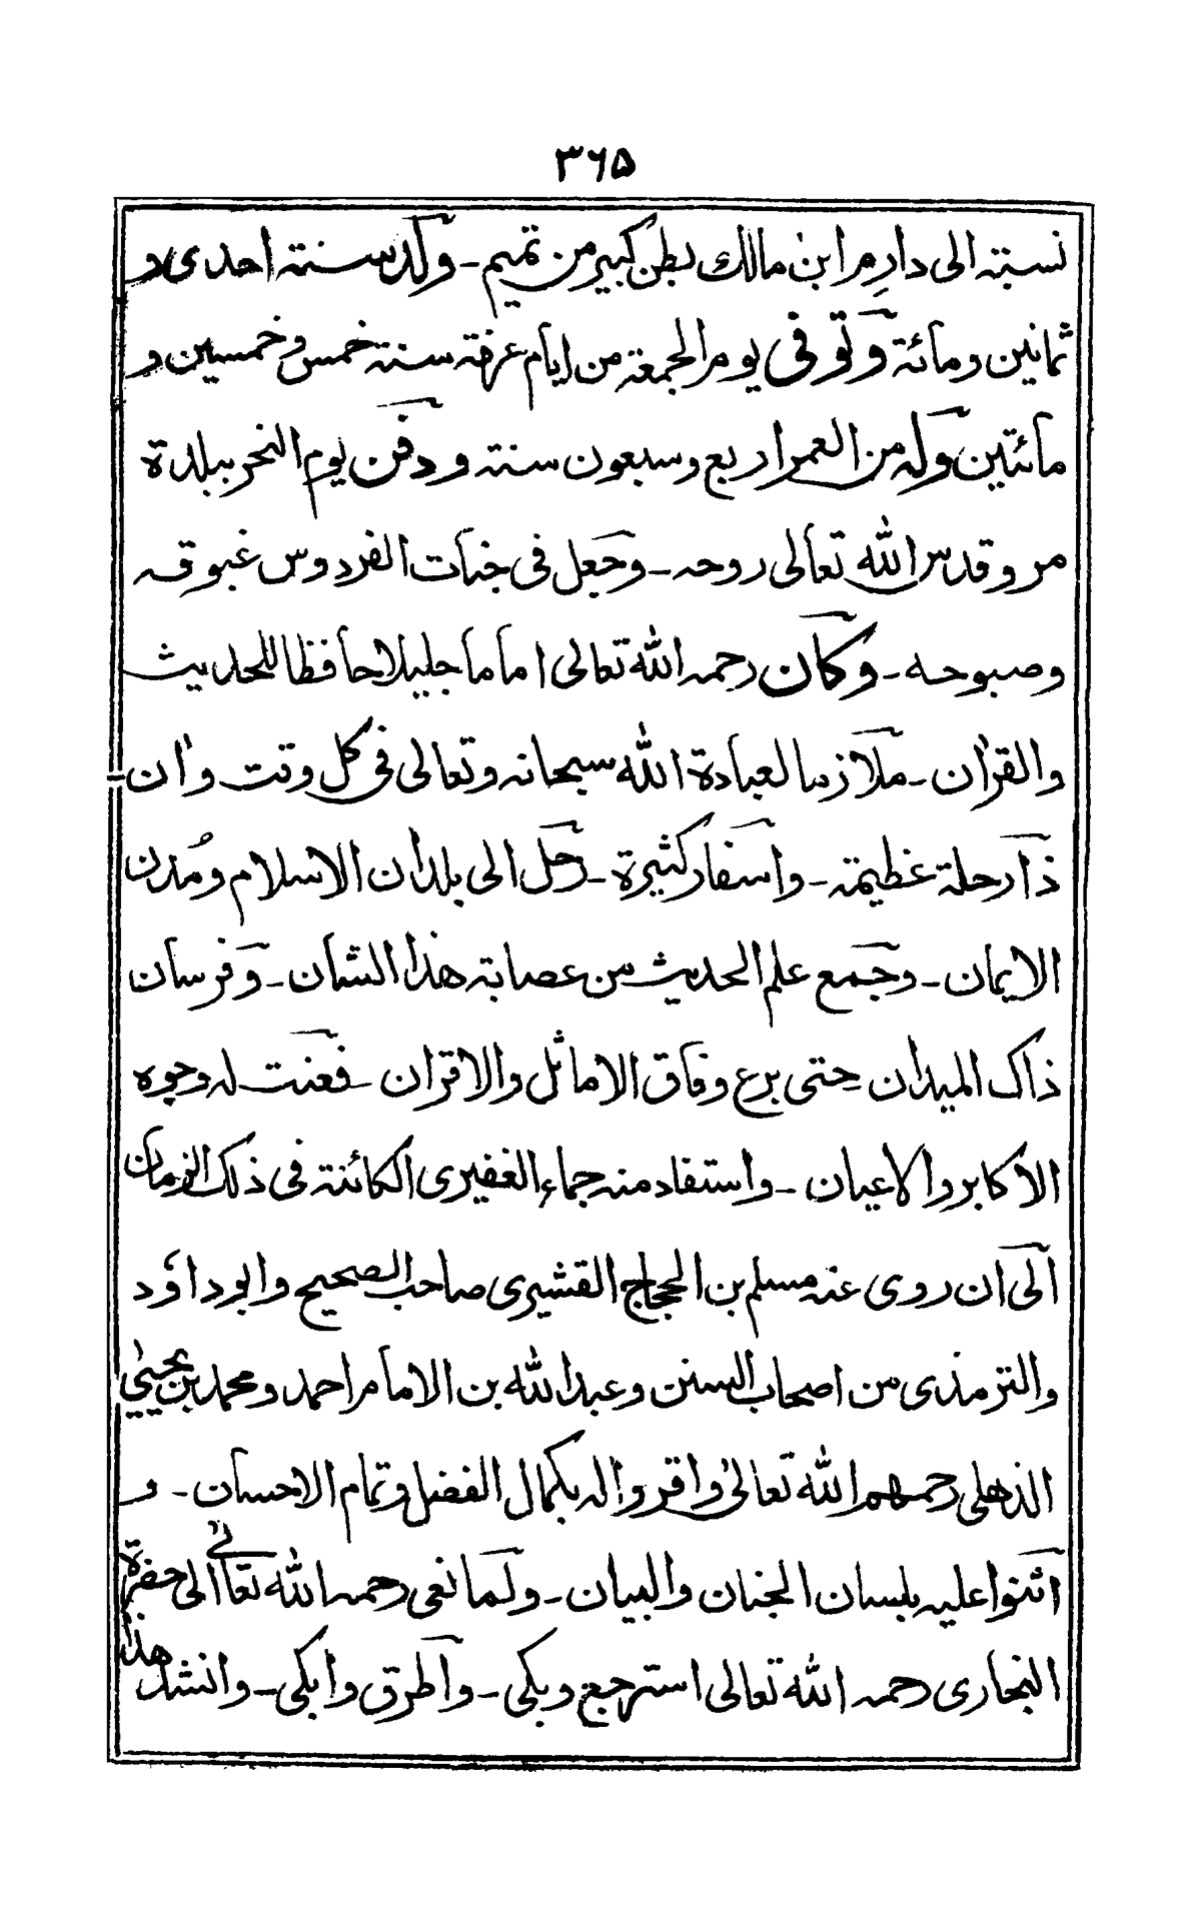 ۳۶۵
نسبته الى دارِم ابن مالك بطن كبير من تميم ـ ولد سنة احدى و
ثمانين ومائة وتوفى يوم الجمعة من ايام عرفة سنة خمس وخمسين و
مائتين وله من العمر اربع وسبعون سنة ودفن يوم النحر ببلدة
مرو قدس الله تعالى روحه ـ وجعل فى جنات الفردوس غبوقه
وصبوحه ـ وكان رحمه الله تعالى اماما جليلا حافظا للحديث
والقرأن ـ ملازما لعبادة الله سبحانه وتعالى فى كل وقت وأن ـ
ذا رحلة عظيمة ـ واسفار كثيرة ـ رحل الى بلدان الاسلام ومُدن
الايمان ـ وجمع علم الحديث من عصابة هذا الشان ـ وفرسان
ذاك الميدان حتى برع وفاق الاماثل والاقران ـ فعنت له وجوه
الاكابر والاعيان ـ واستفاد منه جماء الغفيرى الكائنة فى ذلك الزمان
الى ان روى عنه مسلم بن الحجاج القشيرى صاحب الصحيح وابوداؤد
والترمذى من اصحاب السنن وعبد الله بن الامام احمد ومحمد بن يحيىٰ
الذهلى رحمهم الله تعالىٰ واقروا له بكمال الفضل وتمام الاحسان ـ و
اثنوا عليه بلسان الجنان والبيان ـ ولما نعى رحمه الله تعالىٰ الى حضرة
البخارى رحمه الله تعالى استرجع وبكى ـ واطرق وابكى ـ وانشد هذا